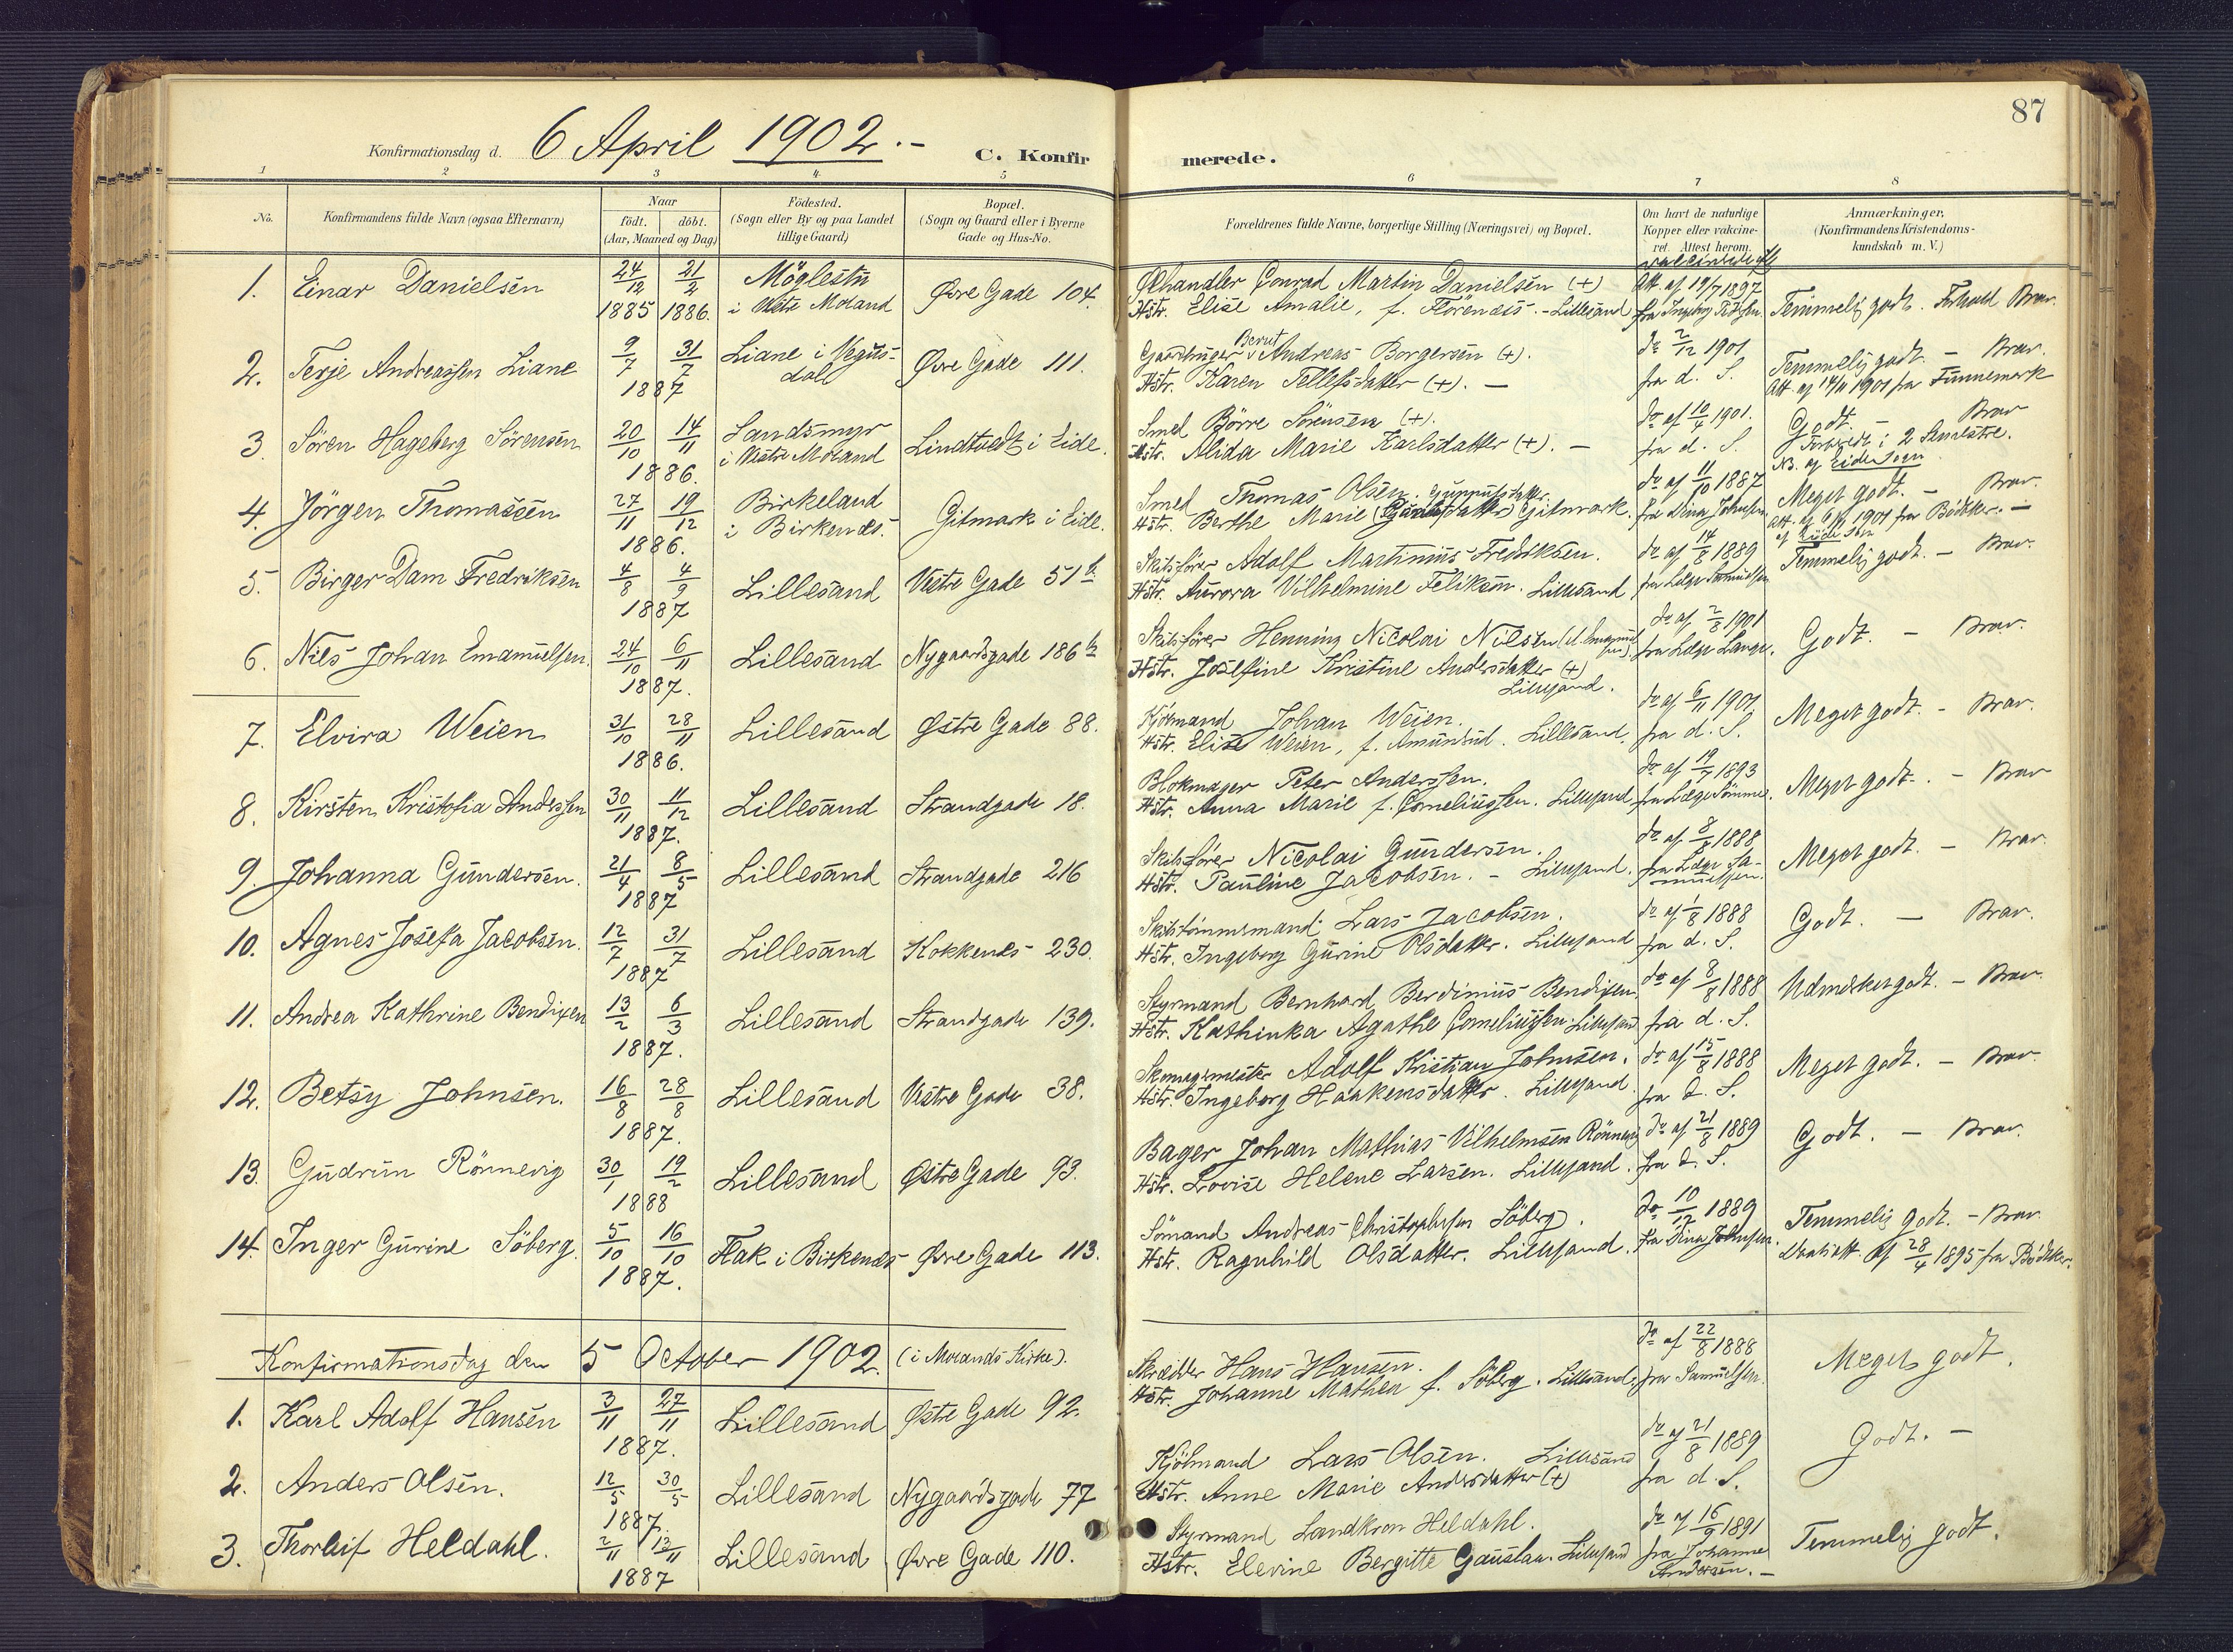 87
Konfirmationsdag d. 6 April 1902.-
C. Konfirmerede.
1 2 3 4. 5 6 7 8
No. Konfirmandens fulde Navn (ogsaa Efternavn) Naar født. døbt. (Aar, Maaned og Dag) Fødested. (Sogn eller By og paa Landet tillige Gaard) Bopæl. (Sogn og Gaard eller i Byerne Gade og Hus-No. Forældrenes fulde Navne, borgerlige Stilling (Næringsvei) og Bopæl. Om havt de naturlige Kopper eller vakcineret. Attest herom. Anmærkninger. (Konfirmandens Kristendomskundskab m. V.)
1. Einar Danielsen 24/12 1885 21/2 1886. Möglestu i Vestre Moland Øvre Gade 104. Conrad Martin Danielsen (+) Att. af 19/7 1897 Temmelig godt. Forhold Brav.
Hstr. Elise Amalie, f. - Lillesand
2. Terje Andreassen Liane 9/7 31/7 1887 Liane i Vegusdall Øvre Gade 111. Gaardbruger Berut Andreas Borgersen (+). do 2/12 1901 Temmelig godt. - Brav.
Hstr. Karen Tellefsdatter (+). - fra d. S. Att. af 14/11 1901 fra Finnemark
3. Sören Hageberg Sörensen 20/10 14/11 1886. Landsmyr i Vestre Moland Lindtvedt i Eide. Smed Börre Sörensen (+). do af 10/4 1901. Godt. - Brav
Hstr. Alida Marie Karlsdatter (+). - fra d. S. Forberedt i 2 Semestre.
4. Jörgen Thomassen 27/11 19/12 1886. Birkeland i Birkenes. Gitmark i Eide. Smed Thomas Olsen. do af 11/10 1887 NB. af Eide Sogn Meget godt. - Brav.
Hstr. Berthe Marie Gitmark. fra Dina Johnsen. Att. af 6/ 1901 fra Bödtker. -
5. Birger Dam Fredriksen 4/8 4/9 1887 Lillesand Vestre Gade 51b Skibsfører Adolf Martinius Fredriksen. do af 14/8 1889 Temmelig godt. - Brav.
Hstr. Aurora Vilhelmine Feliksen. Lillesand fra Læge Samuelsen
6. Nils Johan Emanuelsen. 24/10 6/11 1887. Lillesand Nygaardsgade 186b Skibsfører Henning Nicolai Nilsen do af 2/8 1901 Godt. - Brav.
Hstr. Josefine Kristine Andersdatter (+) Lillesand. fra Læge Lange.
7. Elvira Weien 31/10 28/11 1886. Lillesand Østre Gade 88. Kjöbmand Johan Weien. do af 6/11 1901. Meget godt. - Brav.
Hstr. Elise Weien, f. Amundsud. Lillesand. fra d. S.
8. Kirsten Kristofia Andersen 30/11 11/12 1887. Lillesand Strandgade 18. Blokmager Peter Anderssen. do af 19/7 1893 Meget godt. - Brav
Hstr. Anna Marie f. Corneliussen. Lillesand. fra Læge Sömme.
9. Johanna Gundersen. 21/4 8/5 1887 Lillesand Strandgade 216 Skibsfører Nicolai Gundersen. do af 8/8 1888 Meget godt. - Brav.
Hstr. Pauline Jacobsen. - Lillesand. fra Læge Samuelsen.
10. Agnes Josefa Jacobsen. 12/7 31/7 1887 Lillesand Kokkenes 230. Skibstömmermand Lars Jacobsen. do af 1/8 1888 Godt. - Brav.
Hstr. Ingeborg Gurine Olsdatter. Lillesand fra d. S.
11. Andrea Kathrine Bendixen 13/2 6/3 1887. Lillesand Strandgade 139. Styrmand Bernhard Berdinius Bendixen. do af 8/8 1888 Udmerket godt. - Brav
Hstr. Kathinka Agathe Corneliussen. Lillesand fra d. S.
12. Betsy Johnsen. 16/8 28/8 1887. Lillesand Vestre Gade 38. Skomagermester Adolf Kristian Johnsen. do af 15/8 1888 Meget godt. - Brav.
Hstr. Ingeborg Haakensdatter. Lillesand. fra d. S.
13. Gudrun Rönnevig 30/1 19/2 1888 Lillesand Østre Gade 93. Bager Johan Mathias Vilhelmsen Rönnevig do af 21/8 1889 Godt. - Brav.
Hstr. Lovise Helene Larsen. Lillesand. fra d. S.
14. Inger Gurine Söberg. 5/10 16/10 1887. Flak i Birkenes Øvre Gade 113. Sömand Andreas Christophersen Söberg. do 10/12 1889 Temmelig godt. - Brav.
Hstr. Ragnhild Olsdatter. Lillesand. fra Dina Johnsen. Daabsatt. af 28/4 1895 fra Bödtker.
Konfirmationsdag den 5 October 1902. (i Molands Kirke).
1. Karl Adolf Hansen 3/11 27/11 1887. Lillesand Østre Gade 92. Skrædder Hans Hansen. do af 22/8 1888 Meget godt.
Hstr. Johanne Mathea f. Söberg. Lillesand. fra Samuelsen.
2. Anders Olsen. 12/5 30/5 1887. Lillesand Nygaardsgade 77 Kjöbmand Lars Olsen. Lillesand do af 21/8 1889 Godt. -
Hstr. Anne Marie Andersdatter (+) fra d. S.
3. Thorleif Heldahl. 2/11 13/11 1887 Lillesand Øvre Gade 110. Styrmand Landkron Heldahl. do af 16/9 1891 Temmelig godt.
Hstr. Elevine Bergitte Gauslaa. Lillesand fra Johanne Andersen. -